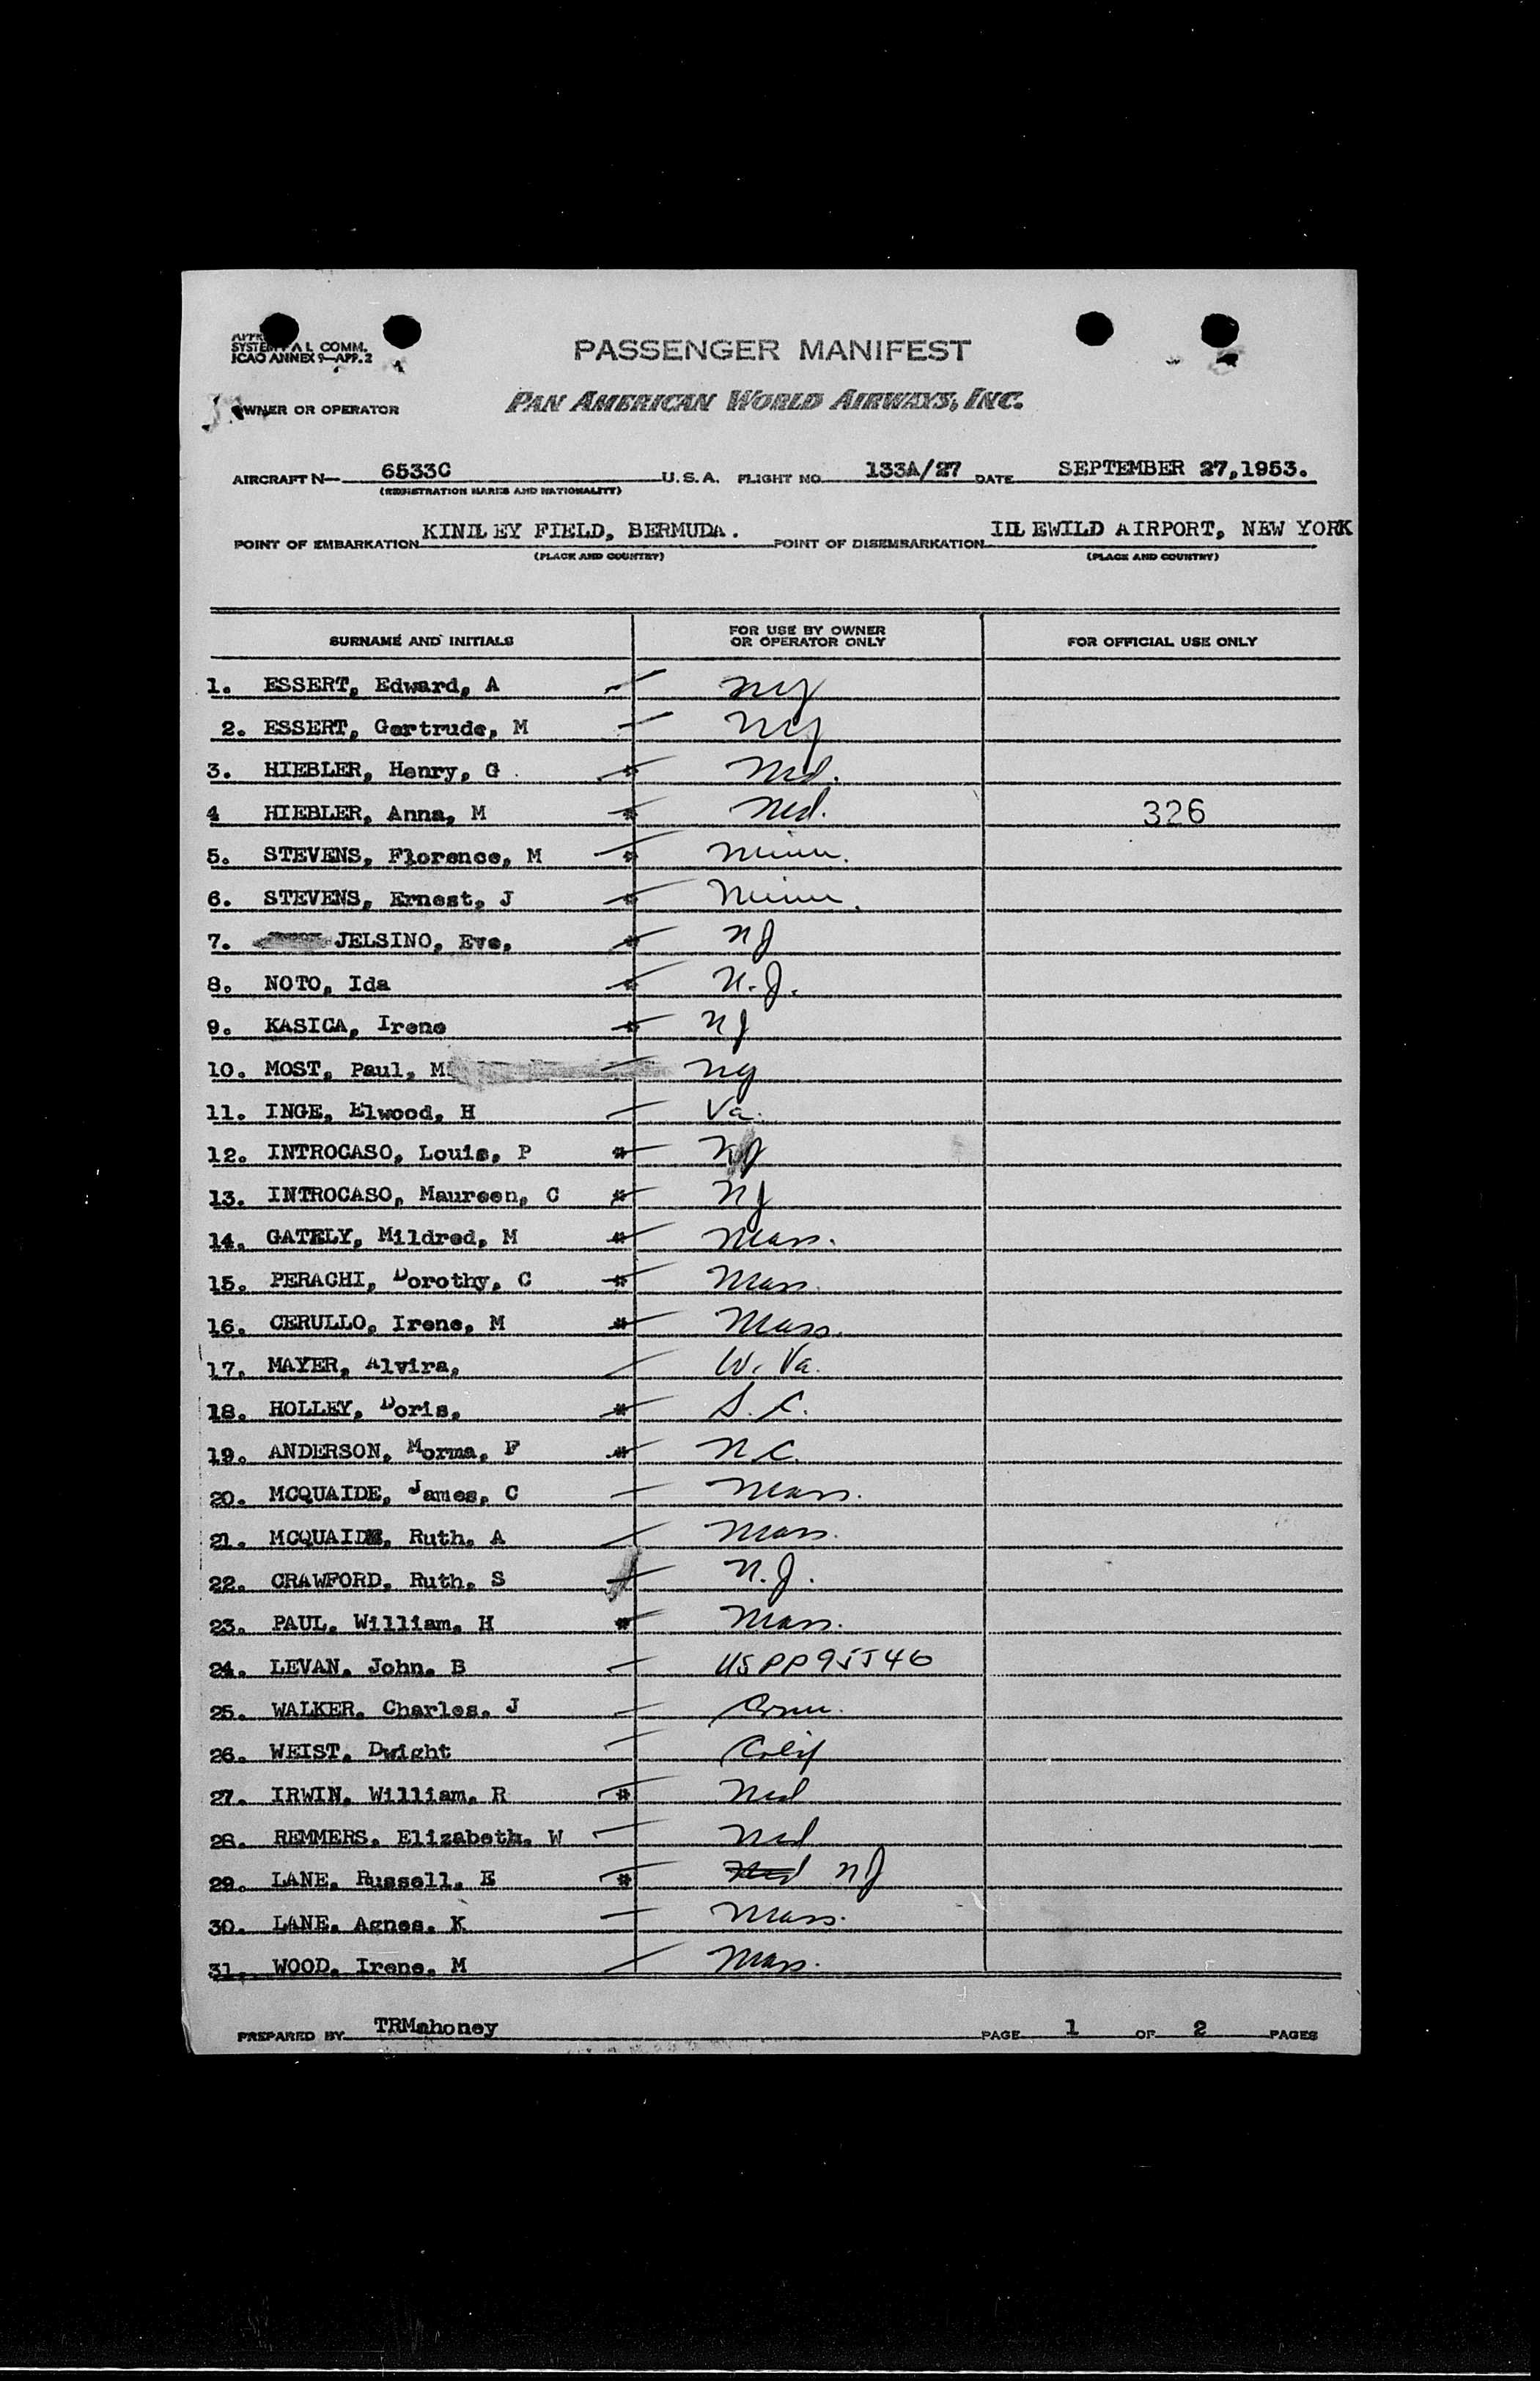 SYSTEM A L COMM.
ICAO ANNEX 9—APP. 2
PASSENGER MANIFEST
OWNER OR OPERATOR PAN AMERICAN WORLD AIRWAYS, INC.
AIRCRAFT N— 6533C U.S.A. FLIGHT NO. 133A/27 DATE SEPTEMBER 27,1953.
(REGISTRATION MARKS AND NATIONALITY)
POINT OF EMBARKATION KINDLEY FIELD, BERMUDA. POINT OF DISEMBARKATION IDLEWILD AIRPORT, NEW YORK
(PLACE AND COUNTRY) (PLACE AND COUNTRY)
SURNAME AND INITIALS FOR USE BY OWNER OR OPERATOR ONLY FOR OFFICIAL USE ONLY
1. ESSERT, Edward, A NY
2. ESSERT, Gertrude, M NY
3. HIEBLER, Henry, G Md.
4 HIEBLER, Anna, M Md. 326
5. STEVENS, Florence, M # Minn.
6. STEVENS, Ernest, J # Minn.
7. JELSINO, Eve, # NJ
8. NOTO, Ida # N.J.
9. KASICA, Irene # NJ
10. MOST, Paul, M NY
11. INGE, Elwood, H Va.
12. INTROCASO, Louis, P # NJ
13. INTROCASO, Maureen, C # NJ
14. GATELY, Mildred, M # Mass.
15. PERACHI, Dorothy, C # Mass.
16. CERULLO, Irene, M # Mass.
17. MAYER, Alvira, W. Va.
18. HOLLEY, Doris, # S.C.
19. ANDERSON, Morma, F # N.C.
20. MCQUAIDE, James, C Mass.
21. MCQUAIDE, Ruth, A Mass.
22. CRAWFORD, Ruth, S N.J.
23. PAUL, William, H # Mass.
24. LEVAN, John, B US PP 95546
25. WALKER, Charles, J Conn.
26. WEIST, Dwight Calif
27. IRWIN, William, R # Md
28. REMMERS, Elizabeth, W Md
29. LANE, Russell, E # Md NJ
30. LANE, Agnes, K Mass.
31. WOOD, Irene, M Mass.
PREPARED BY TRMahoney PAGE 1 OF 2 PAGES